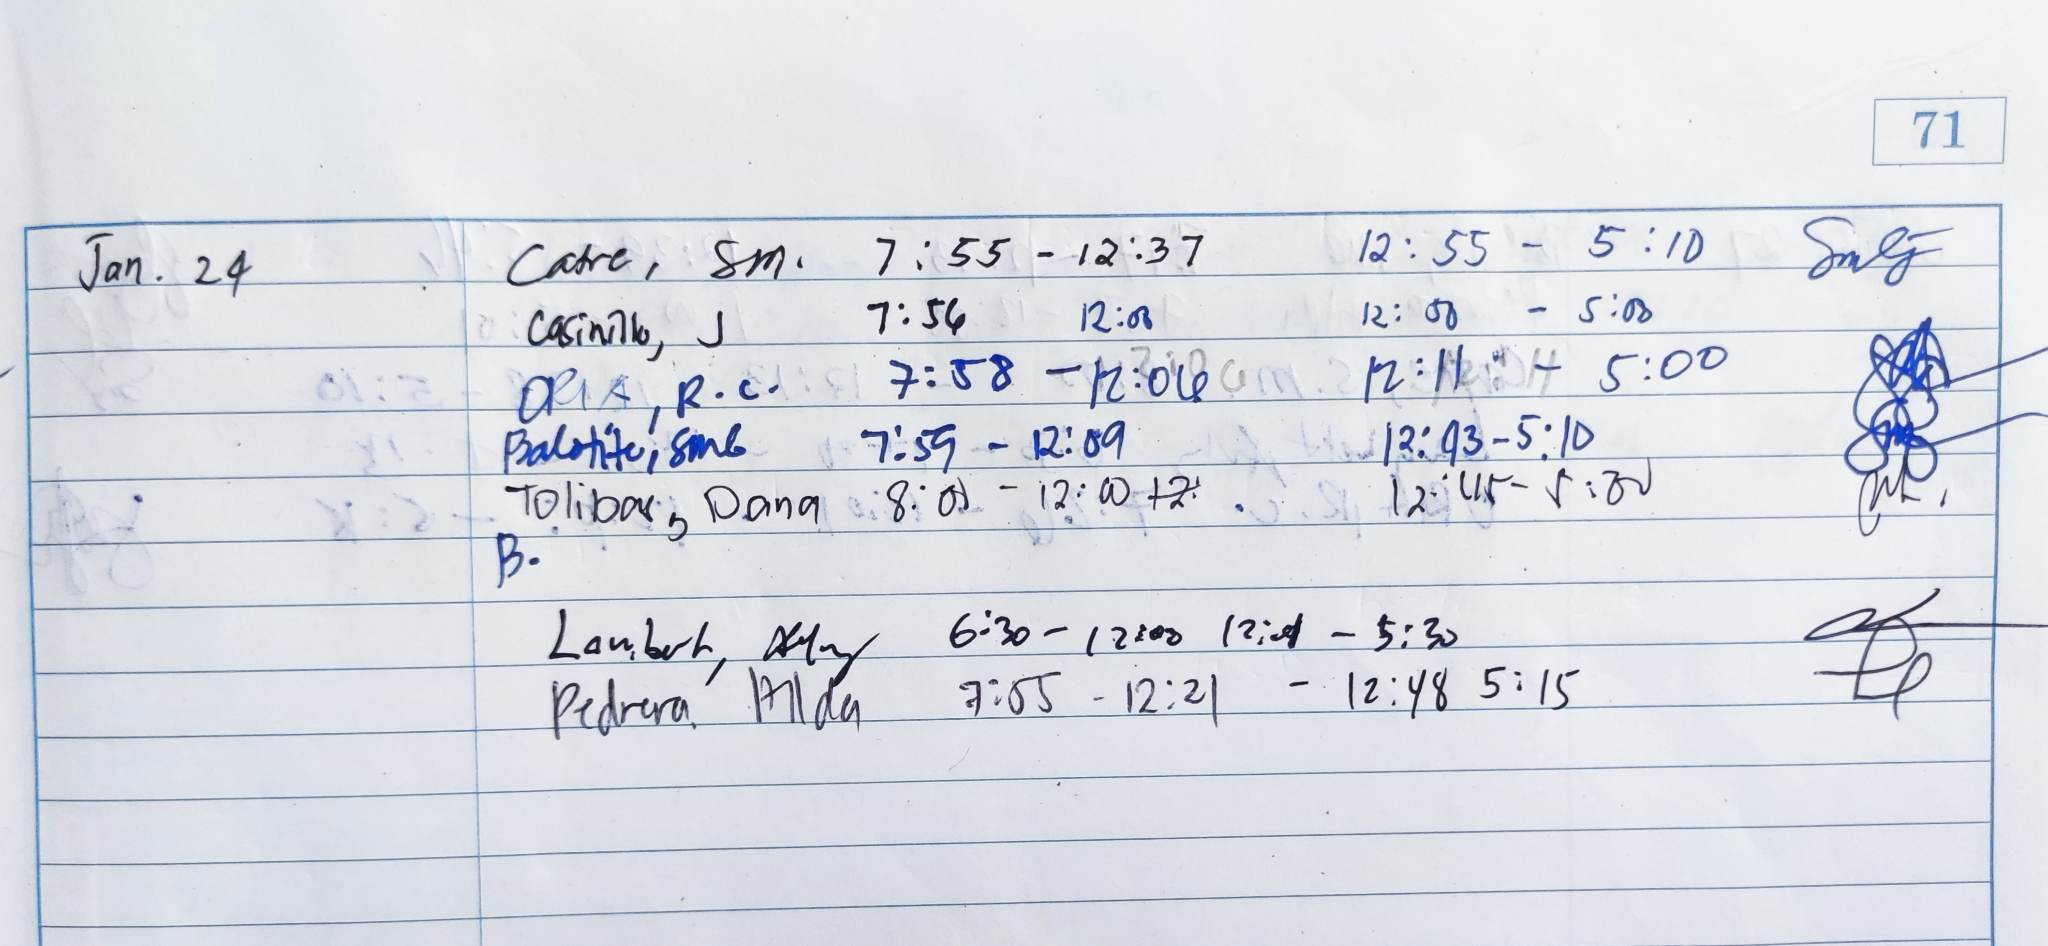 71
Jan. 24 Catre, Sm. 7:55 - 12:37 12:55 - 5:10
Casinillo, J 7:56 12:00 12:00 - 5:00
ORIA, R.C. 7:58 - 12:06 12:11 - 5:00
Balotite, Sm 7:59 - 12:09 12:43 - 5:10
Tolibar, Dana 8:00 - 12:00 12:45 - 5:00
B.
Lambert, 6:30 - 12:00 12:01 - 5:30
Pedrera Alda 7:55 - 12:21 - 12:48 5:15